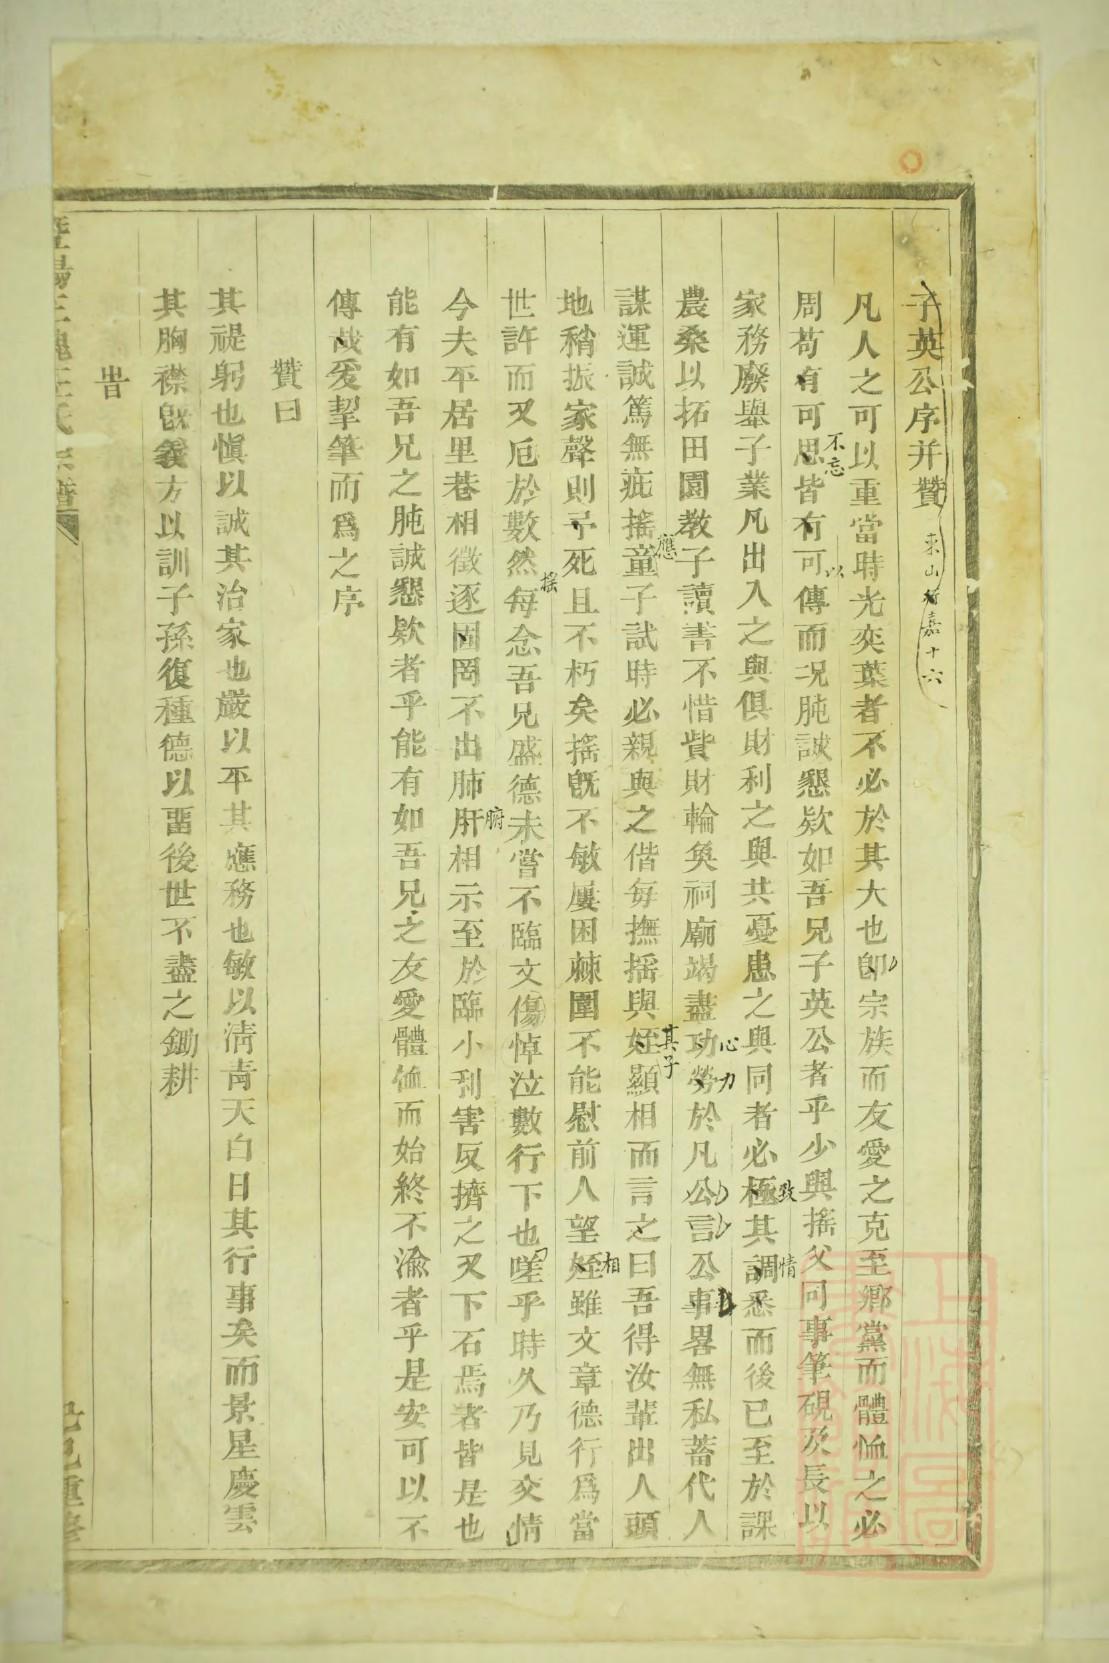 子英公序并贊 東山行嘉十六
凡人之可以重當時光奕葉者不必於其大也卽宗族而友愛之克至鄉黨而體恤之必
周苟有可思皆有可傳而况肫誠懇欵如吾兄子英公者乎少與搖父同事筆硯及長以
不忘
以
家務廢舉子業凡出入之與俱財利之與共憂患之與同者必極其調悉而後已至於課
致
情
農桑以拓田園教子讀書不惜貲財輪奐祠廟竭盡功勞於凡公言公事畧無私蓄代人
心力
謀運誠篤無疵搖童子試時必親與之偕每撫搖與姪顯相而言之曰吾得汝輩出人頭
應
其子
地稍振家聲則予死且不朽矣搖旣不敏屢困棘圍不能慰前人望姪雖文章德行爲當
相
世許而又厄於數然每念吾兄盛德未嘗不臨文傷悼泣數行下也嗟乎時久乃見交情
搖
今夫平居里巷相徵逐固罔不出肺肝相示至於臨小利害反擠之又下石焉者皆是也
腑
能有如吾兄之肫誠懇欵者乎能有如吾兄之友愛體恤而始終不渝者乎是安可以不
傳哉爰挈筆而爲之序
贊曰
其禔躬也愼以誠其治家也嚴以平其應務也敏以淸靑天白日其行事矣而景星慶雲
其胸襟旣義方以訓子孫復種德以畱後世不盡之鋤耕
旹
暨陽王氏宗譜
己巳重修
上海圖書館藏